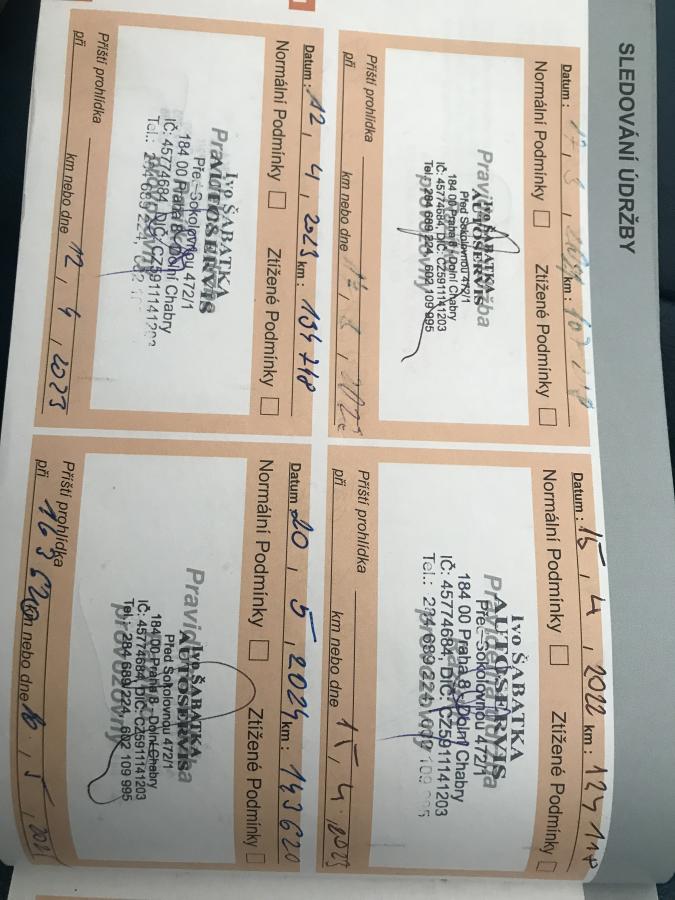 SLEDOVÁNÍ ÚDRŽBY
Datum : km :
Normální Podmínky Ztížené Podmínky
Pravidelná údržba
Ivo ŠABATKA
AUTOSERVIS
Před Sokolovnou 472/1
184 00 Praha 8 - Dolní Chabry
IČ: 45774684, DIČ: CZ5911141203
Tel.: 284 689 224, 602 109 995
Příští prohlídka
při km nebo dne
Datum : 15, 4, 2022 km :
Normální Podmínky Ztížené Podmínky
Ivo ŠABATKA
AUTOSERVIS
Před Sokolovnou 472/1
184 00 Praha 8 - Dolní Chabry
IČ: 45774684, DIČ: CZ5911141203
Tel.: 284 689 224,
Příští prohlídka
při km nebo dne 15, 4, 2023
Datum : 12, 4, 2023 km : 134748
Normální Podmínky Ztížené Podmínky
Ivo ŠABATKA
AUTOSERVIS
Před Sokolovnou 472/1
184 00 Praha 8 - Dolní Chabry
IČ: 45774684, DIČ: CZ5911141203
Tel.: 284 689 224,
Příští prohlídka
při km nebo dne 12, 4,
Datum : 20, 5, 2024 km : 143620
Normální Podmínky Ztížené Podmínky
Ivo ŠABATKA
AUTOSERVIS
Před Sokolovnou 472/1
184 00 Praha 8 - Dolní Chabry
IČ: 45774684, DIČ: CZ5911141203
Tel.: 284 689 224, 602 109 995
Příští prohlídka
při 163620 km nebo dne